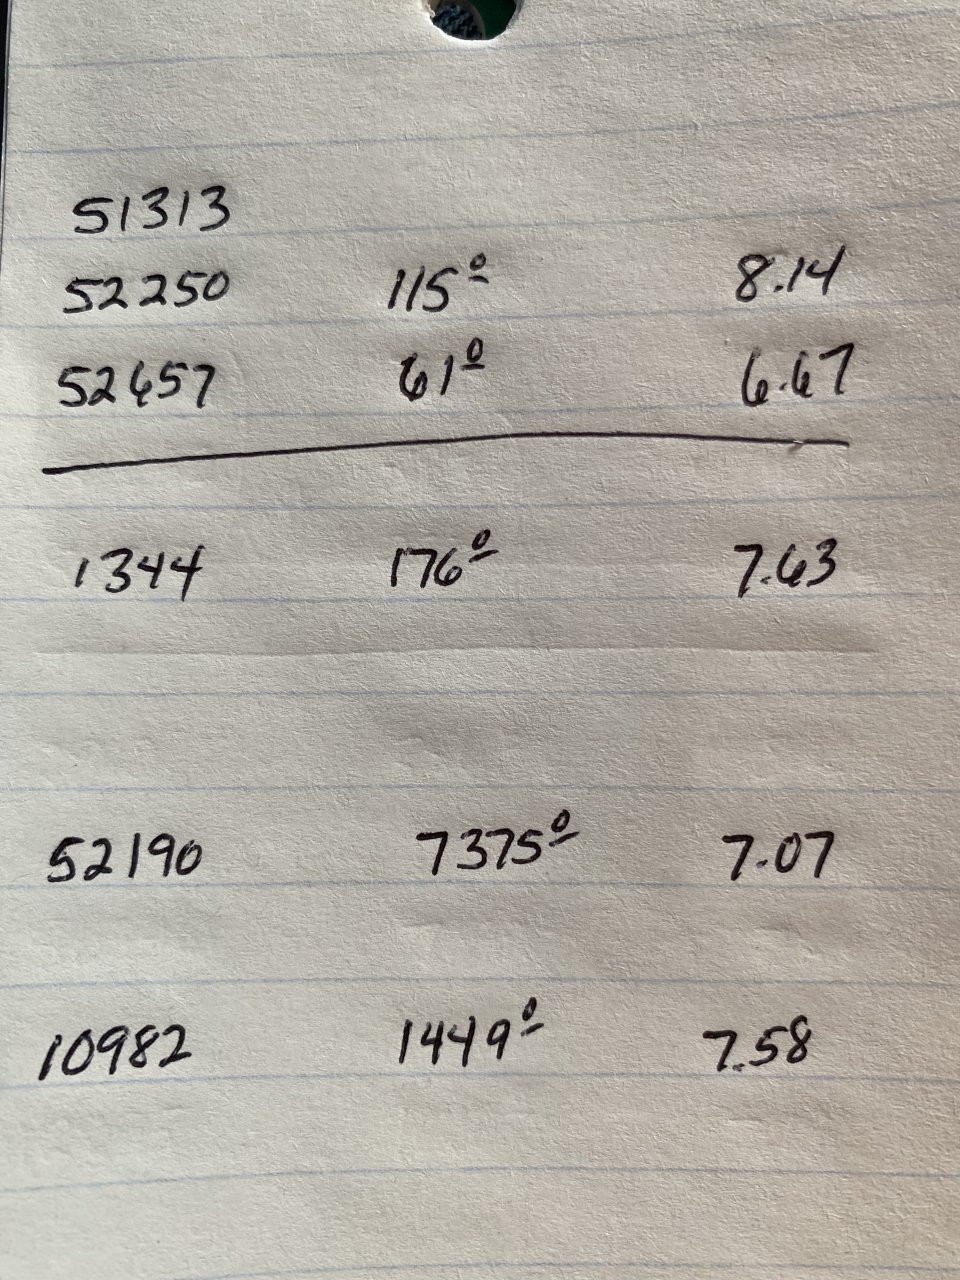 51313
52250 115º 8.14
52657 61º 6.67
1344 176º 7.63
52190 7375º 7.07
10982 1449º 7.58